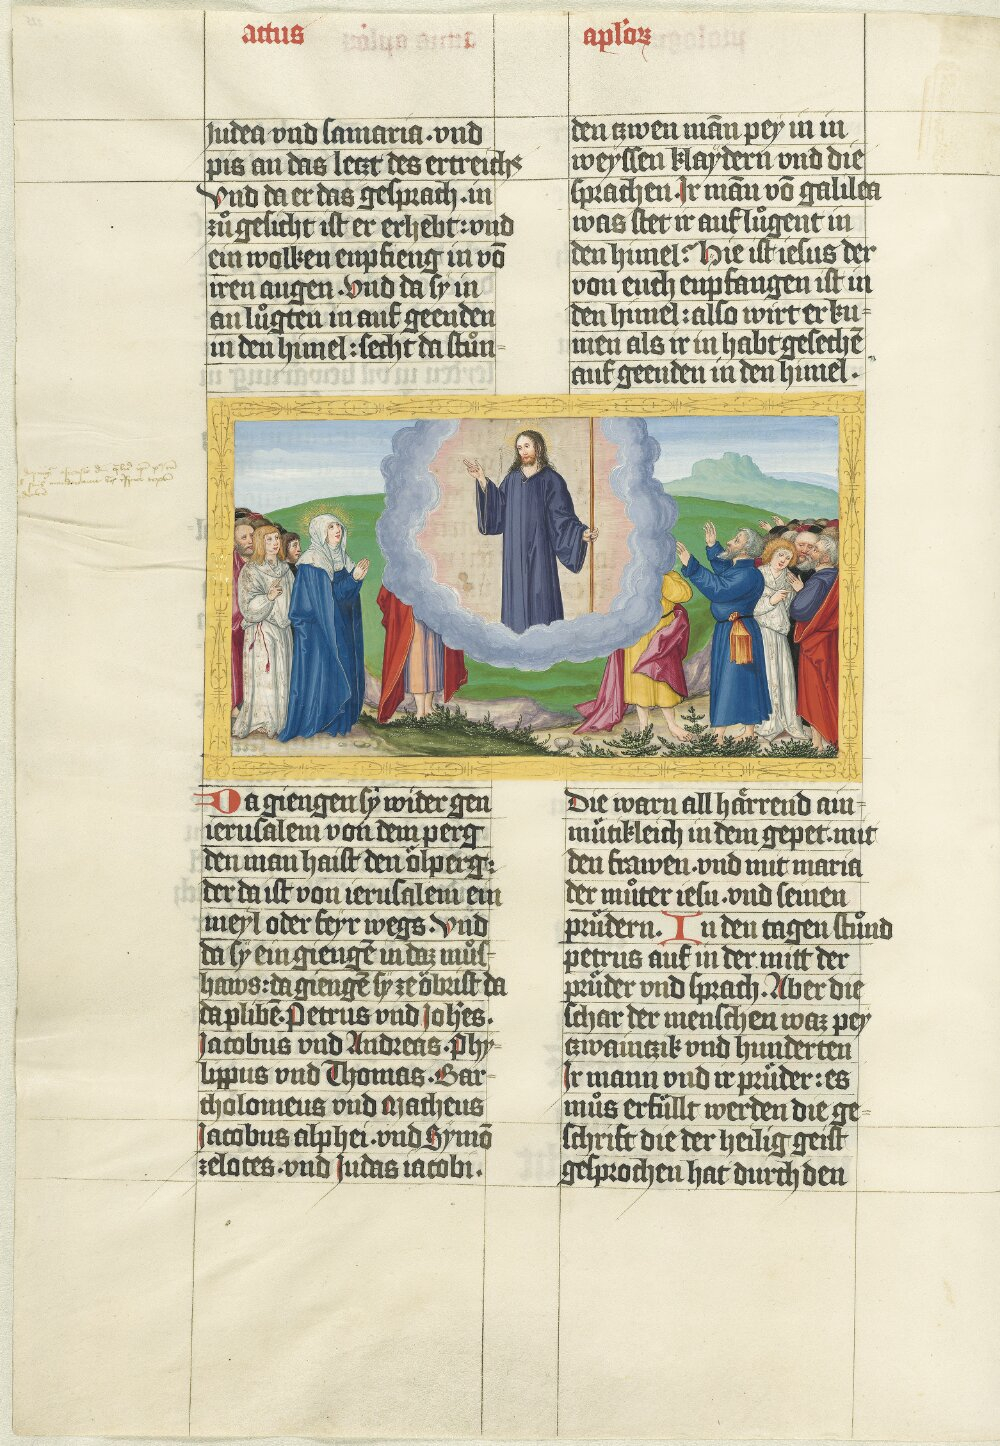 actus
aploꝝ
Judea vnd samaria · vnd
pis an das letzt des ertreichs
Vnd da er das gesprach · in
zůgesicht ist er erhebt : vnd
ein wolken enpfieng in võ
iren augen · Vnd da sy in
an lůgten in auf geenden
in den himel : secht da stůn-
den tzwen mãn pey in in
weyssen klaydern vnd die
sprachen · Ir mãn võ galilea
was stet ir auf lůgent in
den himel : Hie ist iesus der
von euch enpfangen ist in
den himel : also wirt er ku-
men als ir in habt gesechẽ
auf geenden in den himel ·
Da giengen sy wider gen
ierusalem von dem perg
den man haist den ölperg :
der da ist von ierusalem ein
meyl oder feyr wegs · Vnd
da sy ein giengẽ in daz můs-
haws : da giengẽ sy ze öbrist da
da plibẽ · Petrus vnd johẽs ·
Jacobus vnd Andreas · Phy-
lippus vnd Thomas · Bar-
tholomeus vnd Matheus
Jacobus alphei · vnd Symõ
zelotes · vnd Judas iacobi ·
Die warn all härrend ain-
můtikleich in dem gepet · mit
den frawen · vnd mit maria
der můter iesu · vnd seinen
průdern · In den tagen stůnd
petrus auf in der mitt der
průder vnd sprach · Aber die
schar der menschen waz pey
tzwaintzik vnd hunderten
Ir mann vnd ir průder : es
můs erfüllt werden die ge-
schrift die der heilig geist
gesprochen hat durch den